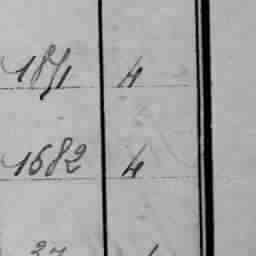 1871 4
1682 4